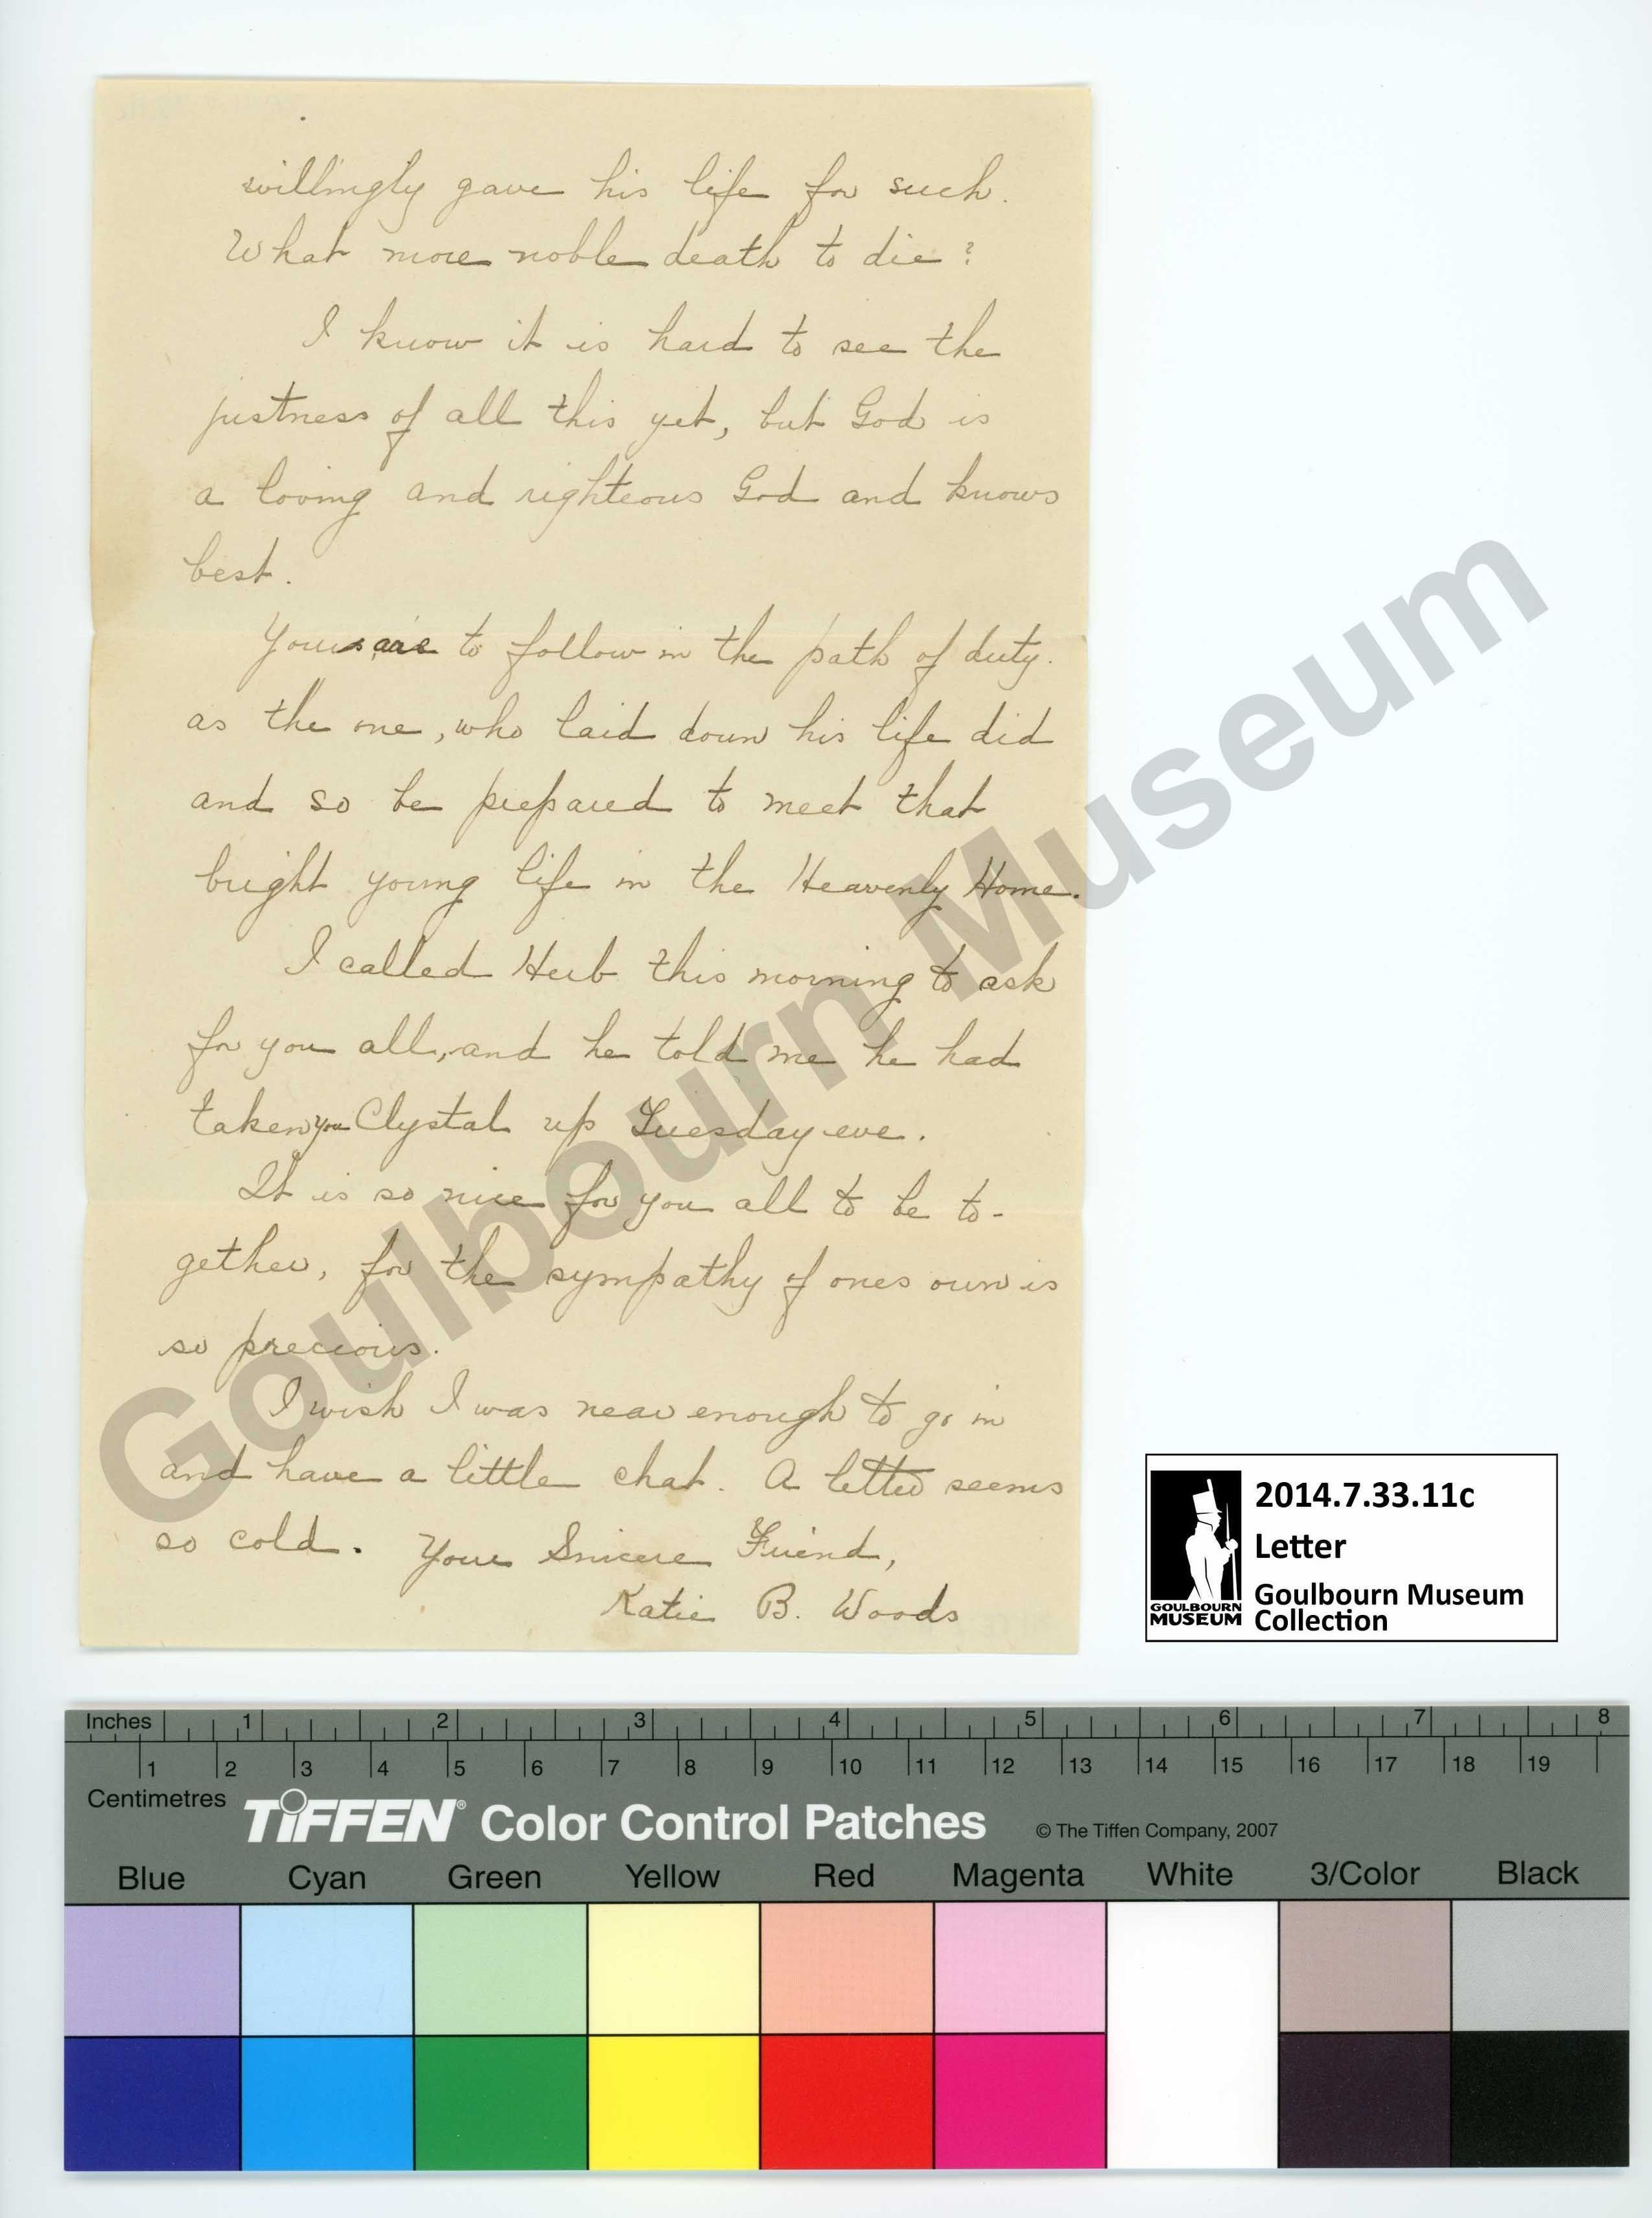 willingly gave his life for such.
What more noble death to die?
I know it is hard to see the
justness of all this yet, but God is
a loving and righteous God and knows
best.
Yours are to follow in the path of duty.
as the one, who laid down his life did
and so be prepared to meet that
bright young life in the Heavenly Home.
I called Herb this morning to ask
for you all, and he told me he had
taken you Clystal up Tuesday eve.
It is so nice for you all to be to-
gether, for the sympathy of ones own is
so precious.
I wish I was near enough to go in
and have a little chat. A letter seems
so cold. Your Sincere Friend,
Katie B. Woods
Goulbourn Museum
GOULBOURN
MUSEUM
2014.7.33.11c
Letter
Goulbourn Museum
Collection
Inches 1 2 3 4 5 6 7 8
1 2 3 4 5 6 7 8 9 10 11 12 13 14 15 16 17 18 19
Centimetres
TIFFEN® Color Control Patches © The Tiffen Company, 2007
Blue Cyan Green Yellow Red Magenta White 3/Color Black